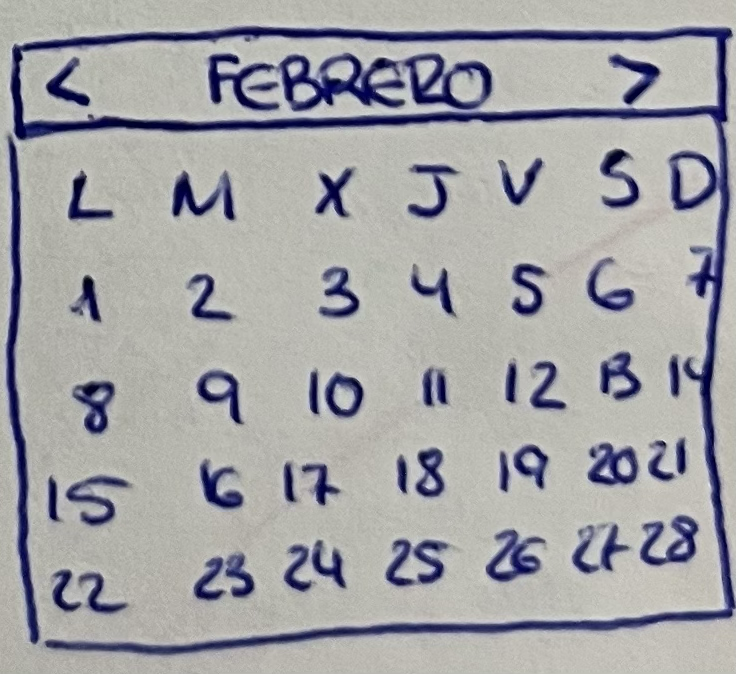 < FEBRERO >
L M X J V S D
1 2 3 4 5 6 7
8 9 10 11 12 13 14
15 16 17 18 19 20 21
22 23 24 25 26 27 28